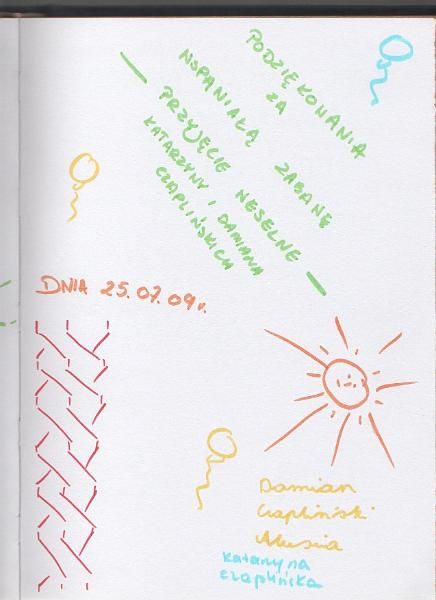 PODZIĘKOWANIA
ZA
WSPANIAŁĄ ZABAWĘ
— PRZYJĘCIE WESELNE —
KATARZYNY I DAMIANA
CZAPLIŃSKICH
DNIA 25.07.09r.
Damian
Czapliński
Katarzyna
Czaplińska